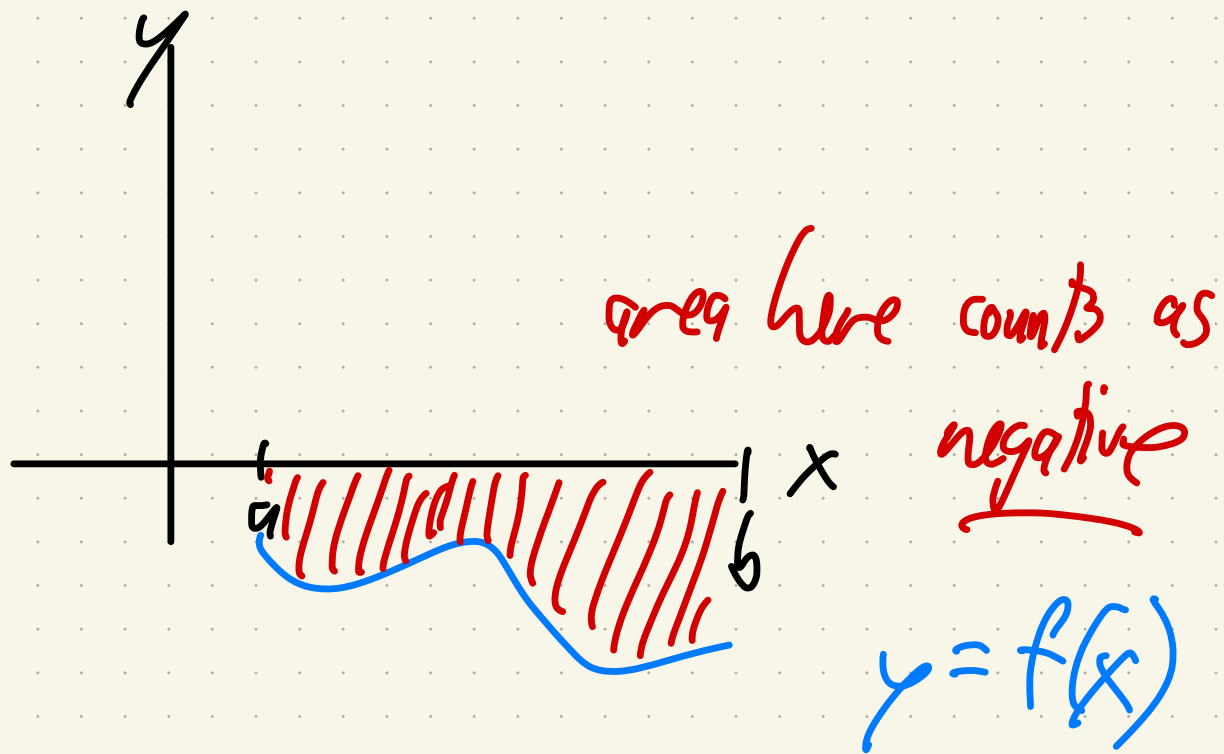 y
area here counts as
negative
x
a
b
y = f(x)